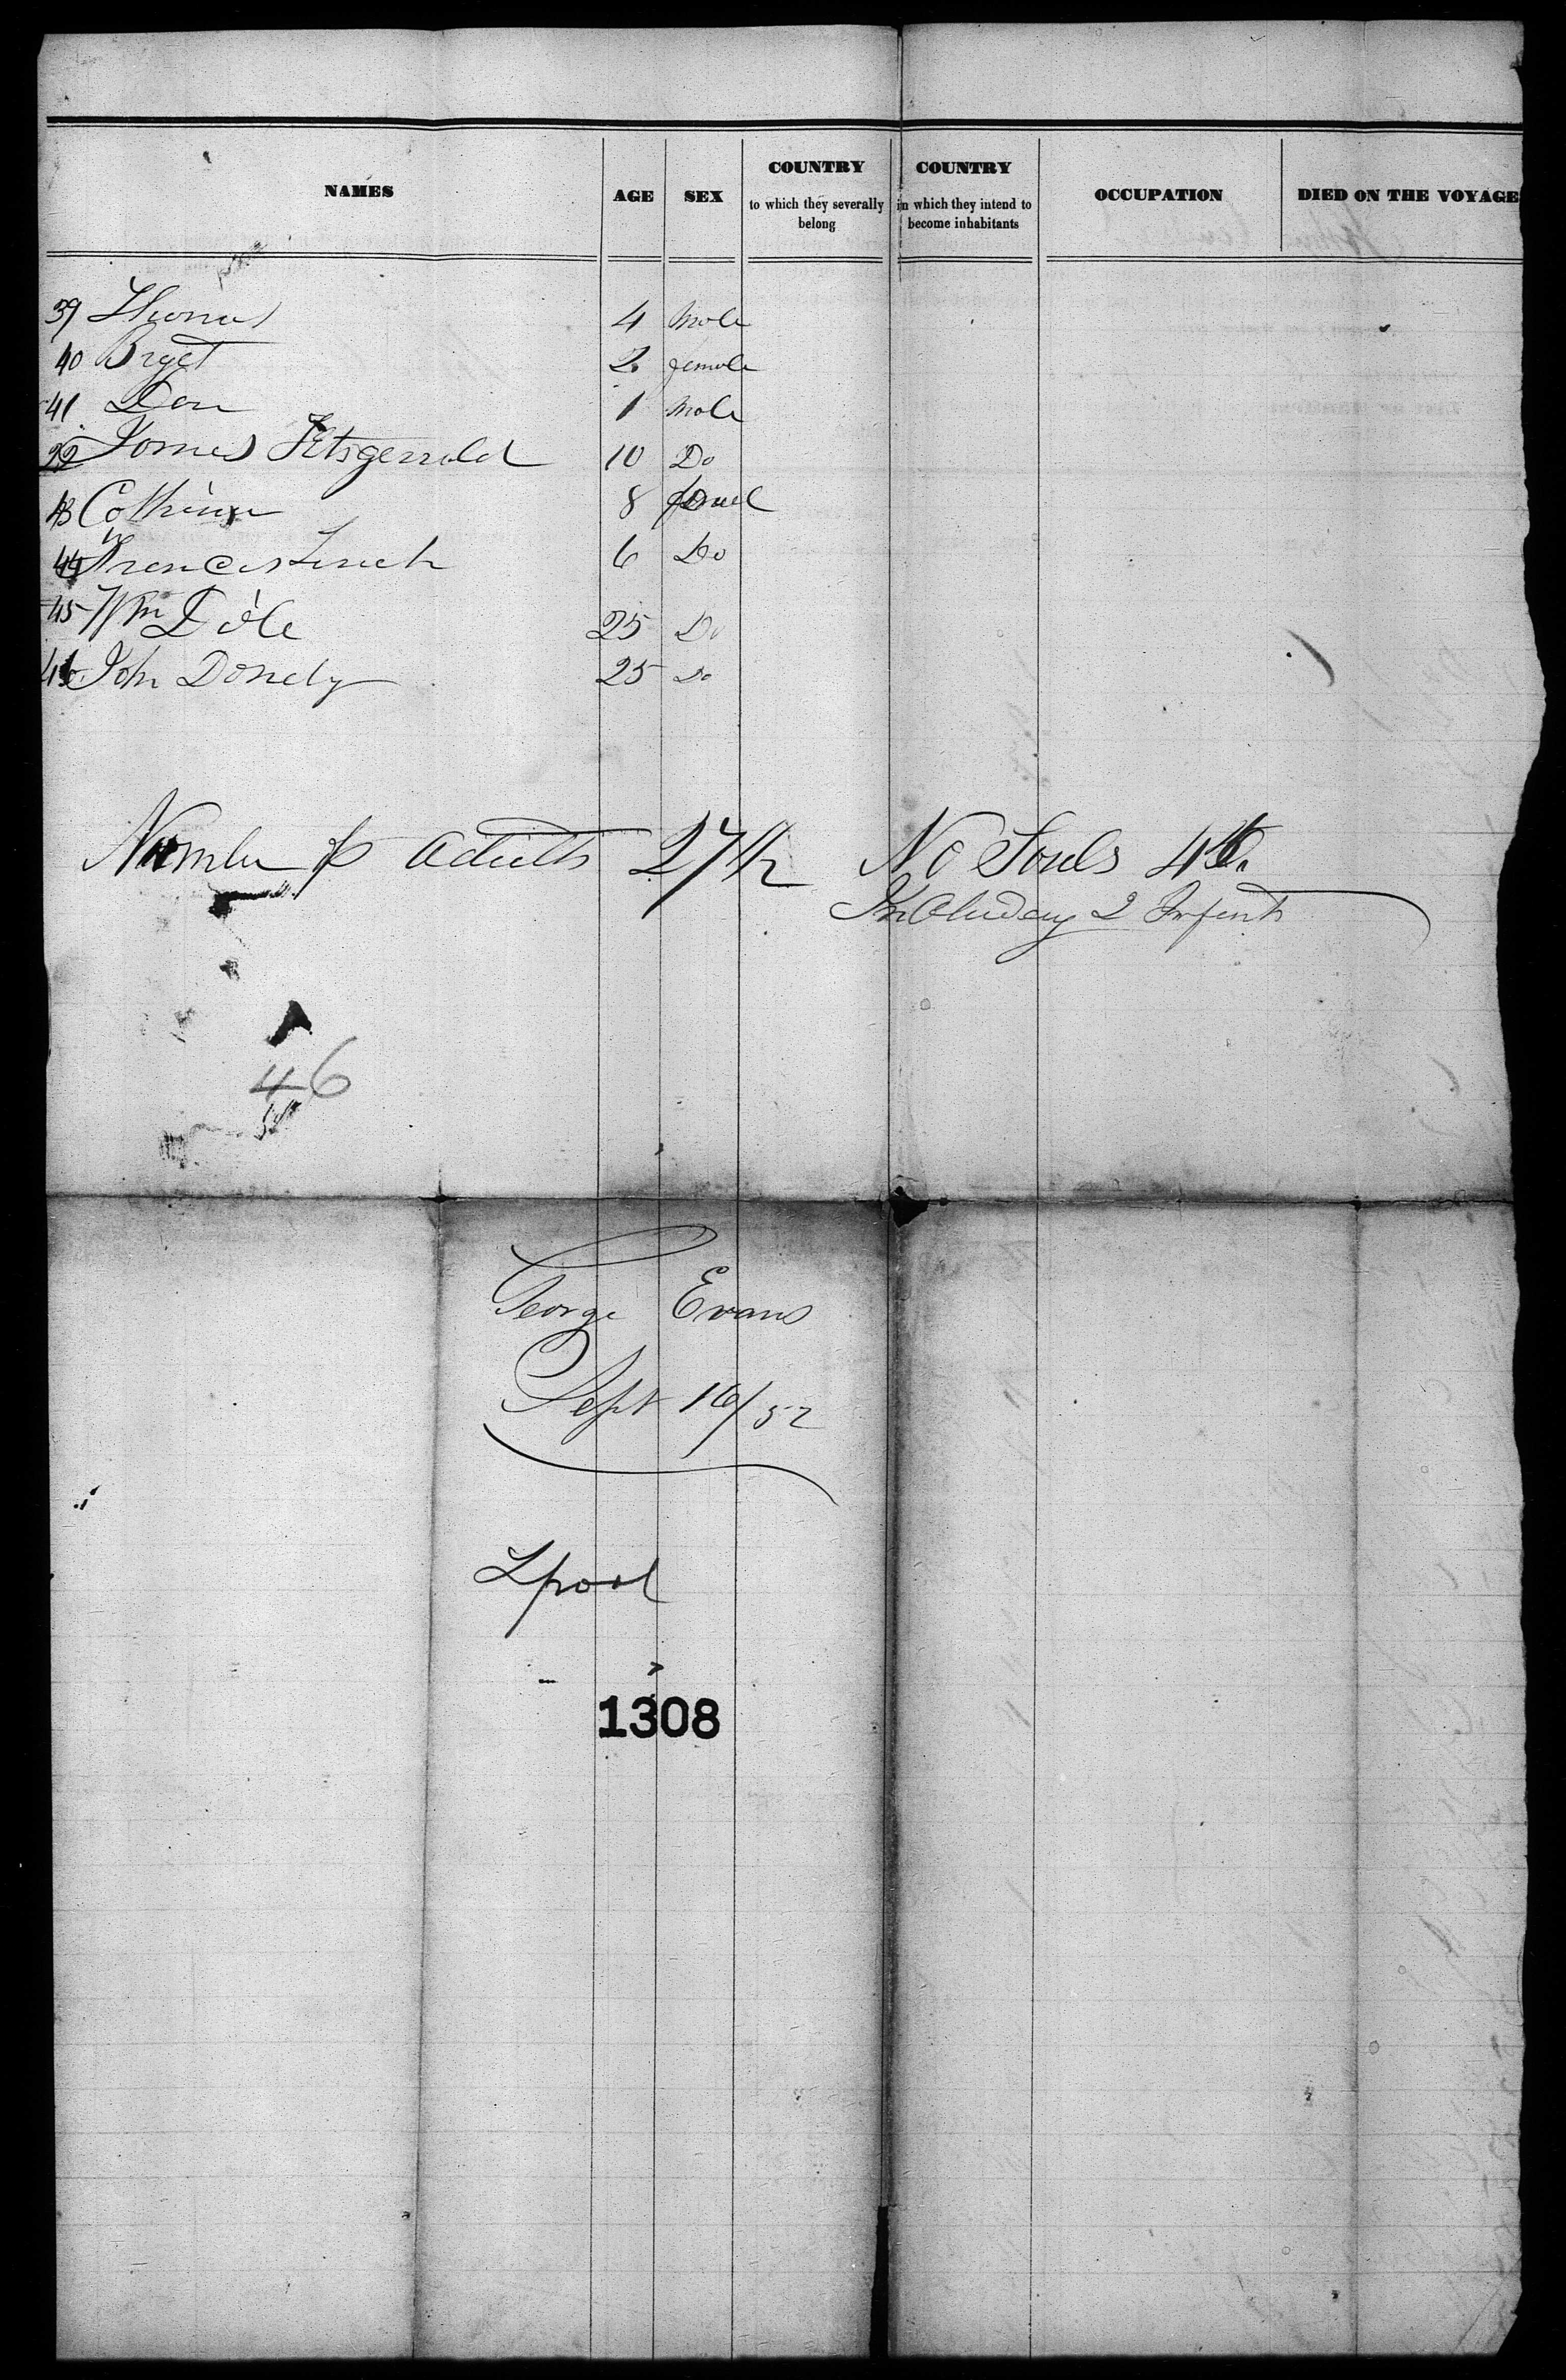 NAMES AGE SEX COUNTRY to which they severally belong COUNTRY in which they intend to become inhabitants OCCUPATION DIED ON THE VOYAGE
39 Thomas 4 Male
40 Bryet 2 female
41 Dan 1 Male
James Fitsgerrald 10 Do
43 Cathrine 8
44 Frances Linch 6 Do
45 Wm Dole 25 Do
46 John Donely 25 Do
Number of Adults 27 1/2 No Souls 46
Including 2 Infants
46
George Evans
Sept 16/52
Lpool
1308